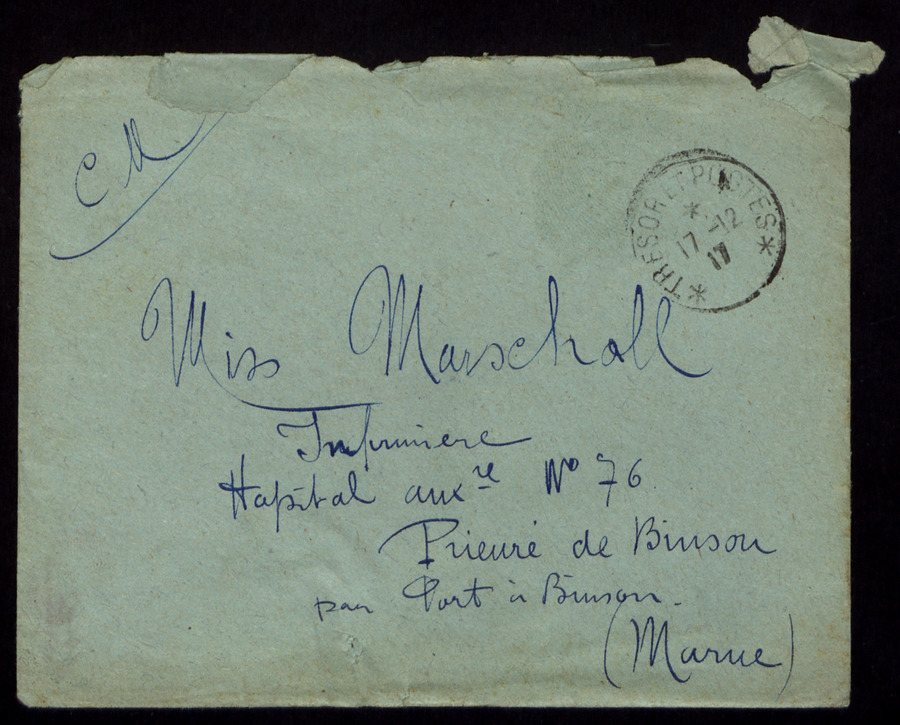 CM
TRESOR ET POSTES
17-12
17
Miss Marschall
Infirmiere
Hopital auxre No 76
Prieuré de Binson
par Port à Binson.
(Marne)